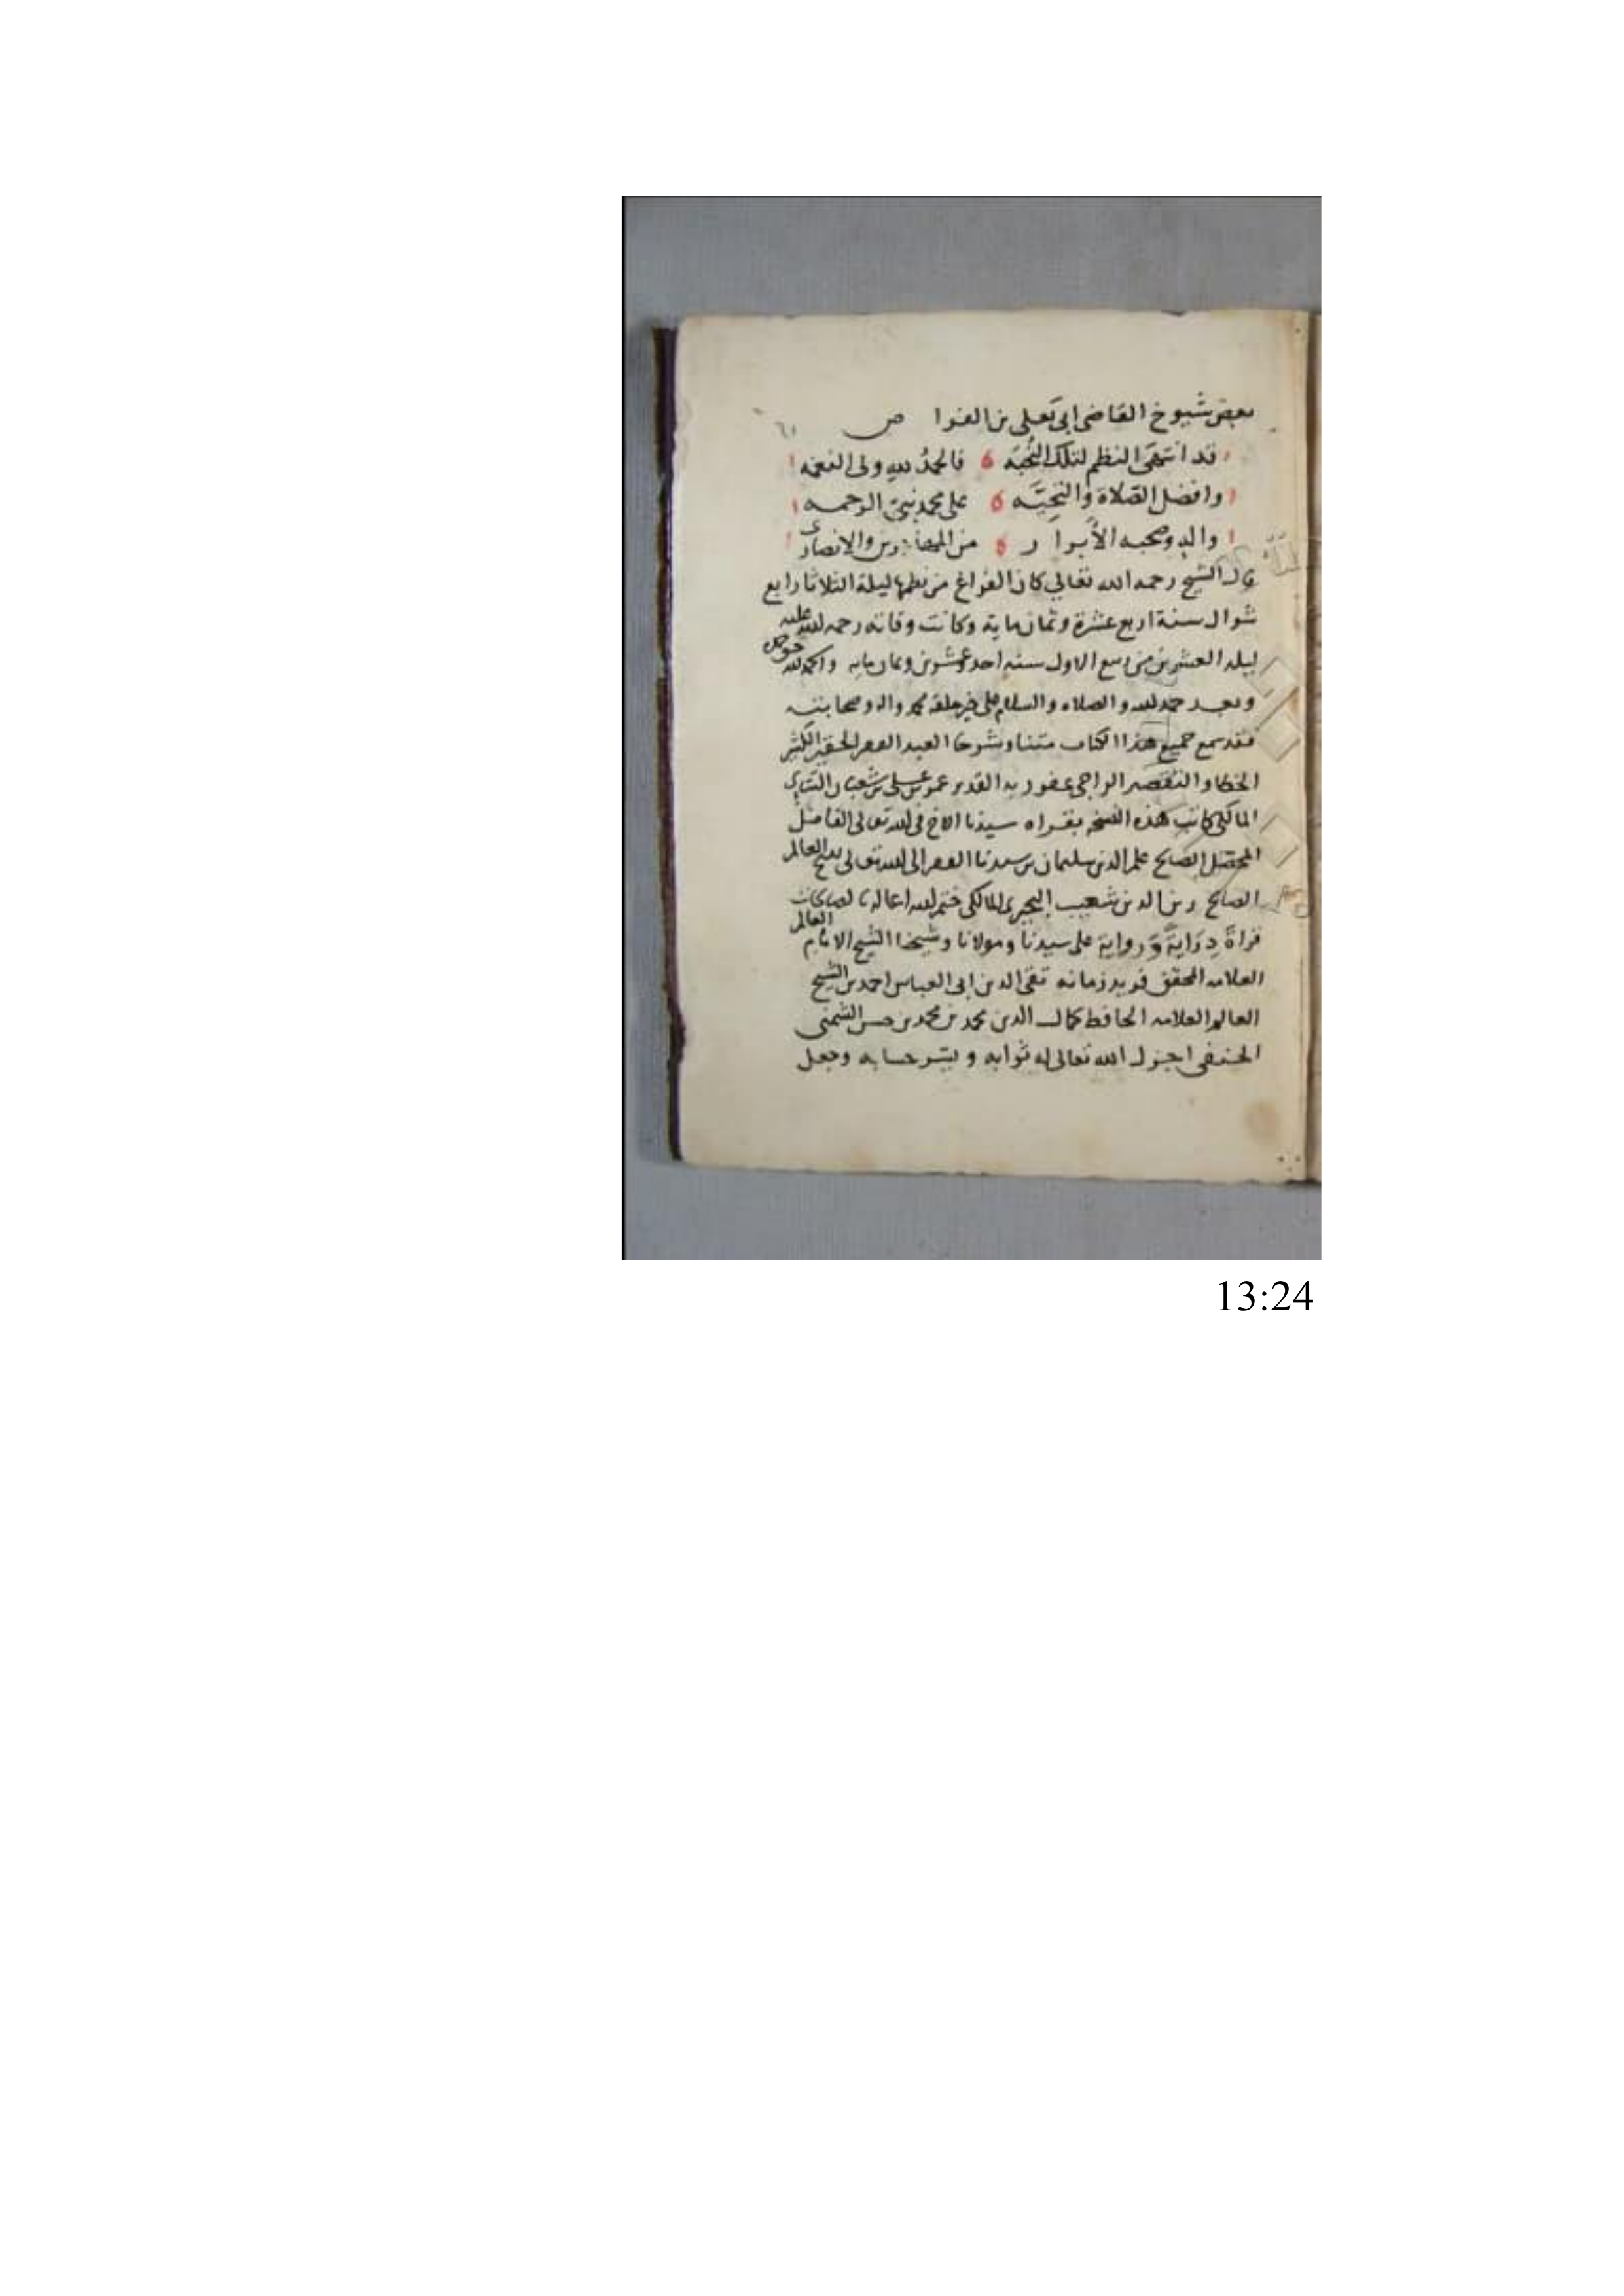 بعض شيوخ القاضي ابي يعلى بن الفرا ص
قد انتهى النظم لتلك النُّخبَه فالحمدُ للهِ ولي النعمه
وافضل الصَّلاة والتحيَّه على محمد نبيّ الرحمه
واله وصحبه الأبرار من المهاجرين والانصاري
قال الشيخ رحمه الله تعالي كان الفراغ من نظمها ليلة الثلاثا رابع
شوال سنة اربع عشرة وثمان ماية وكانت وفاته رحمه الله عليه
ليله العشرين من ربيع الاول سنه احد وعشرين وثمان مايه والحمد لله حق حمده
وبعد حمد لله والصلاه والسلام على خير خلقه محمد واله وصحابته
فقد سمع جميع هذا الكتاب متنا وشرحا العبد الفقير الحقير الكثير
الخطا والتقصير الراجي عفو ربه القدير عمر بن علي بن شعبان التتاي
المالكي كاتب هذه النسخه بقراه سيدنا الاخ في الله تعالى الفاضل
المحصّل الصالح علم الدين سليمان بن سيدنا الفقير الى الله تعالى الشيخ العالم
الصالح زين الدين شعيب البحيري المالكي ختم الله اعماله بالصالحات
قراةً دِرَايةً وَّرواية على سيدنا ومولانا وشيخنا الشيخ الامام العالم
العلامه المحقق فريد زمانه تقي الدين ابي العباس احمد بن الشيخ
العالم العلامه الحافظ كمال الدين محمد بن محمد بن حسن الشمني
الحنفي اجزل الله تعالى له ثوابه ويسّر حسابه وجعل
13:24